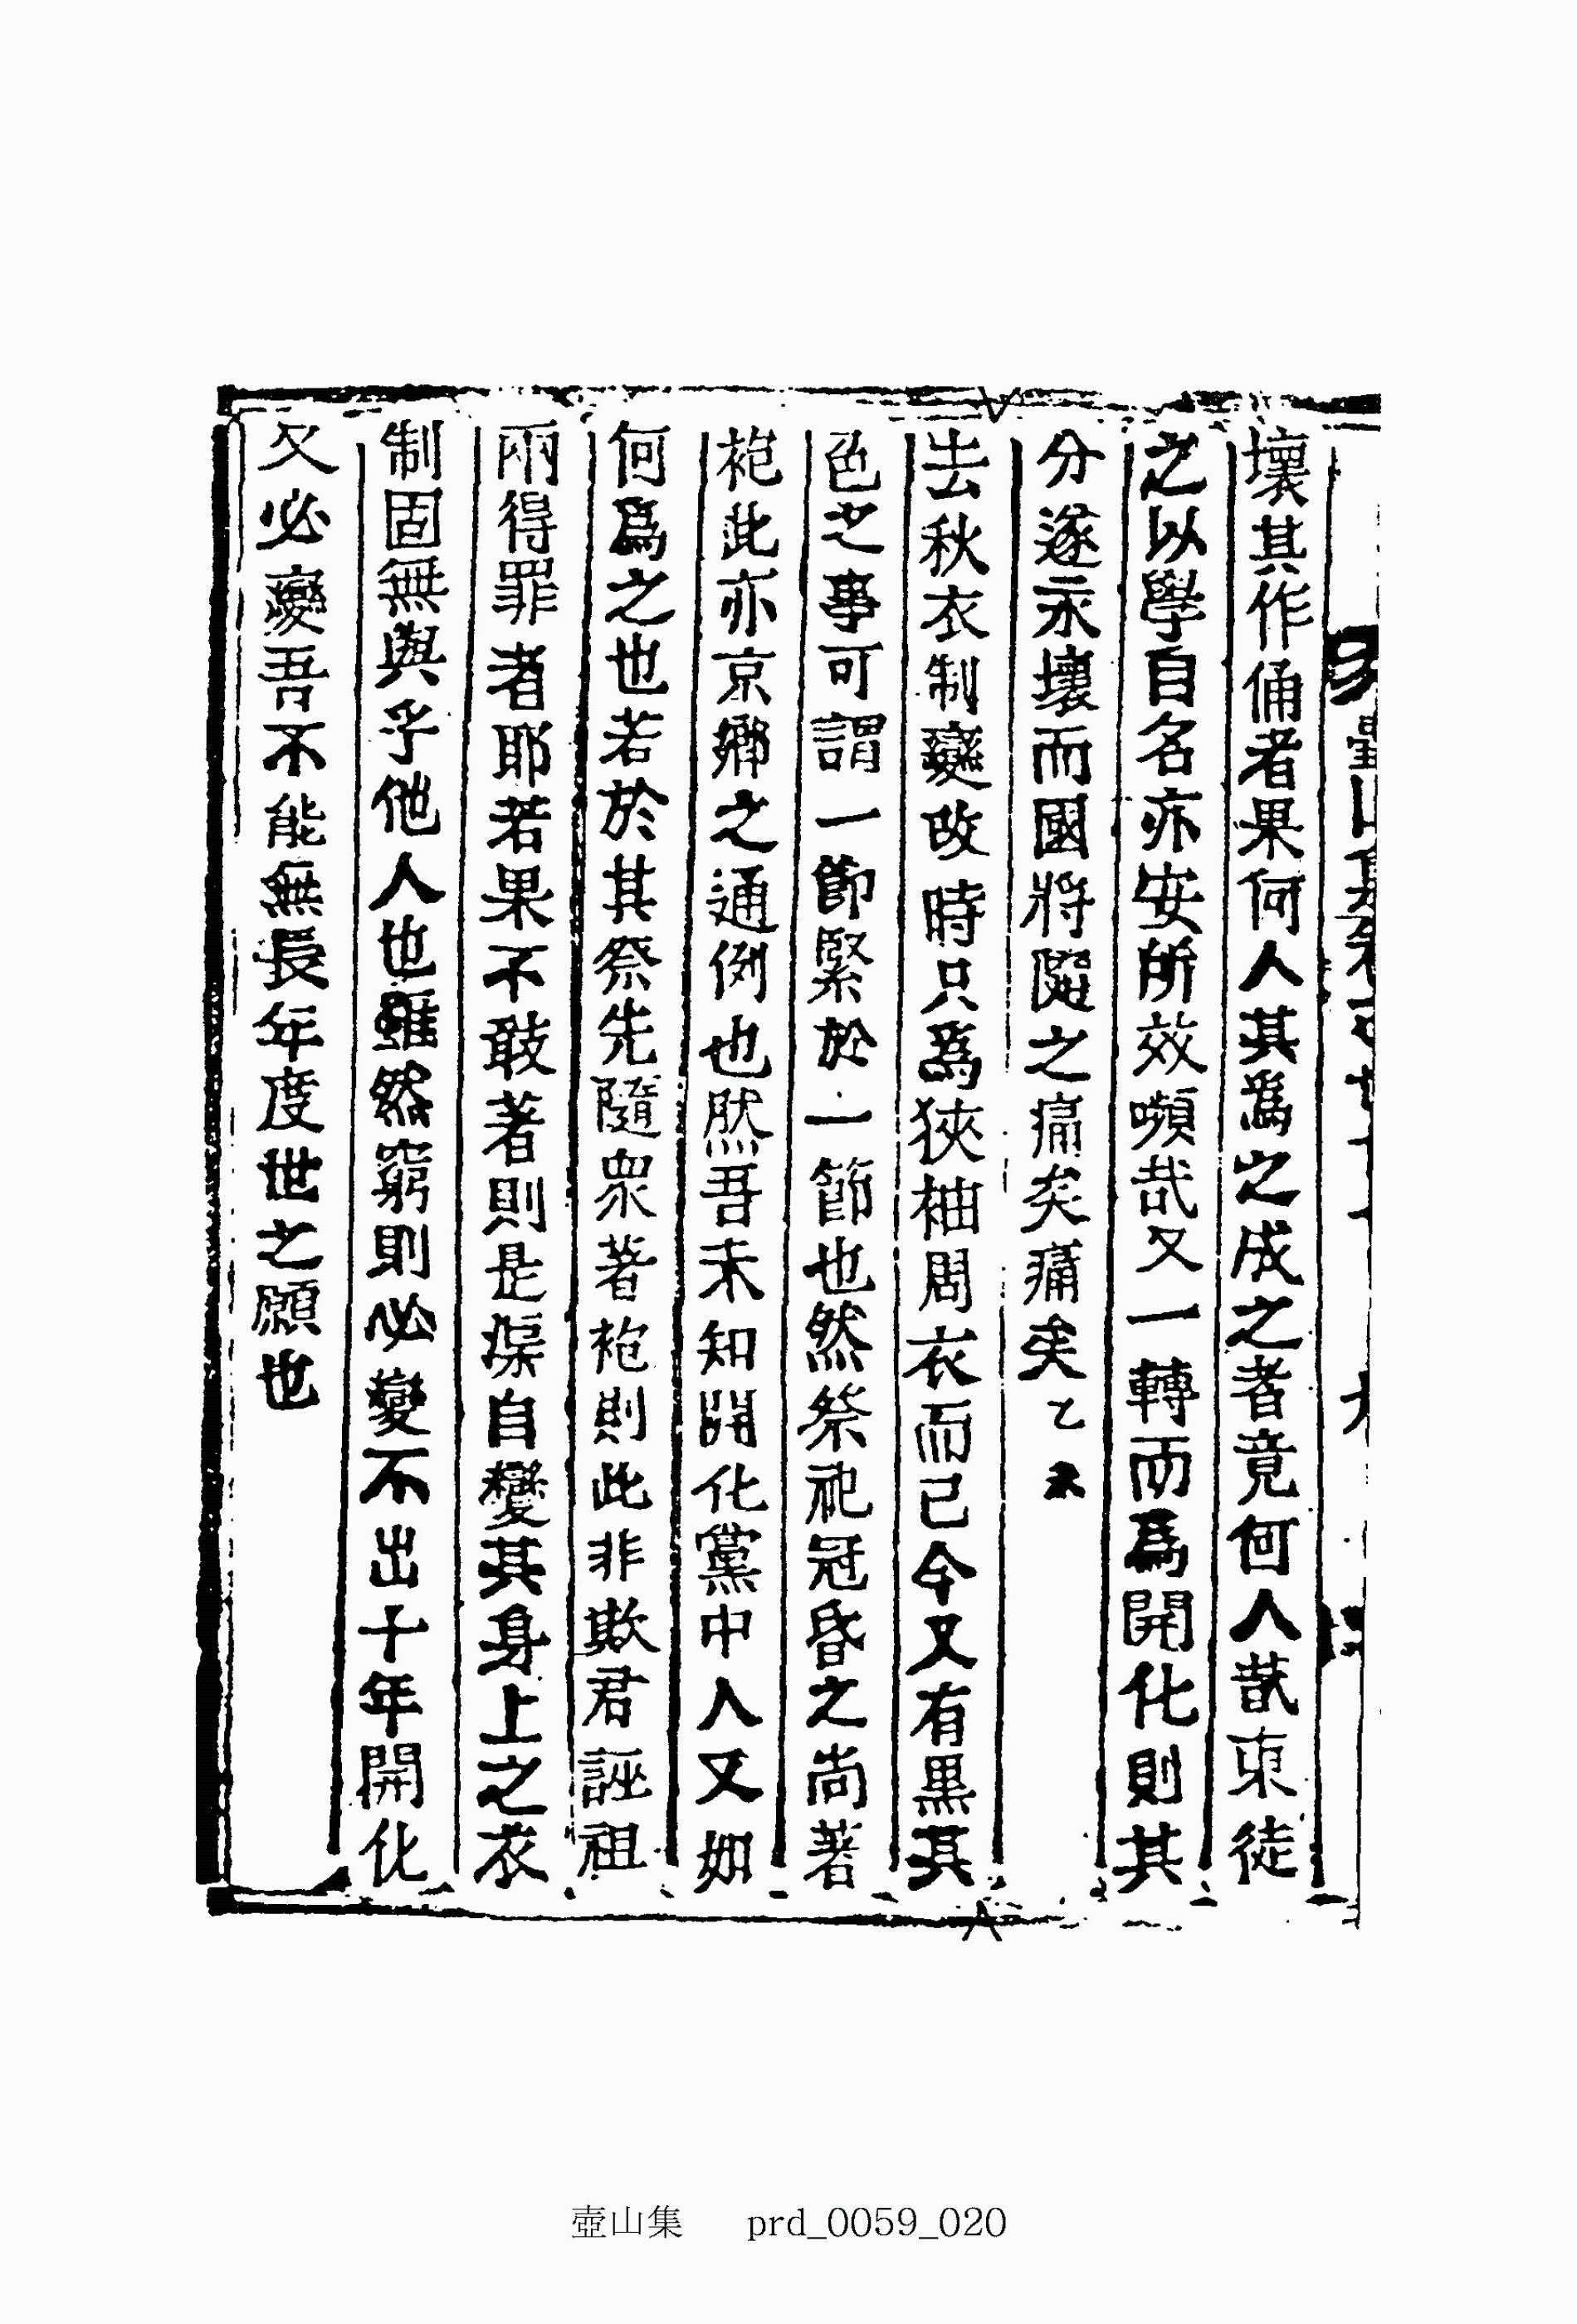 壞其作俑者果何人其爲之成之者竟何人哉東徒
之以學自名亦安所效嚬哉又一轉而爲開化則其
分遂永壞而國將隨之痛矣痛矣乙未
去秋衣制變改時只爲狹袖周衣而已今又有黑其
色之事可謂一節緊於一節也然祭祀冠昏之尚著
袍此亦京鄉之通例也然吾未知開化黨中人又如
何爲之也若於其祭先隨衆著袍則此非欺君誣祖
兩得罪者耶若果不敢著則是渠自變其身上之衣
制固無與乎他人也雖然窮則必變不出十年開化
又必變吾不能無長年度世之願也
壺山集 prd_0059_020